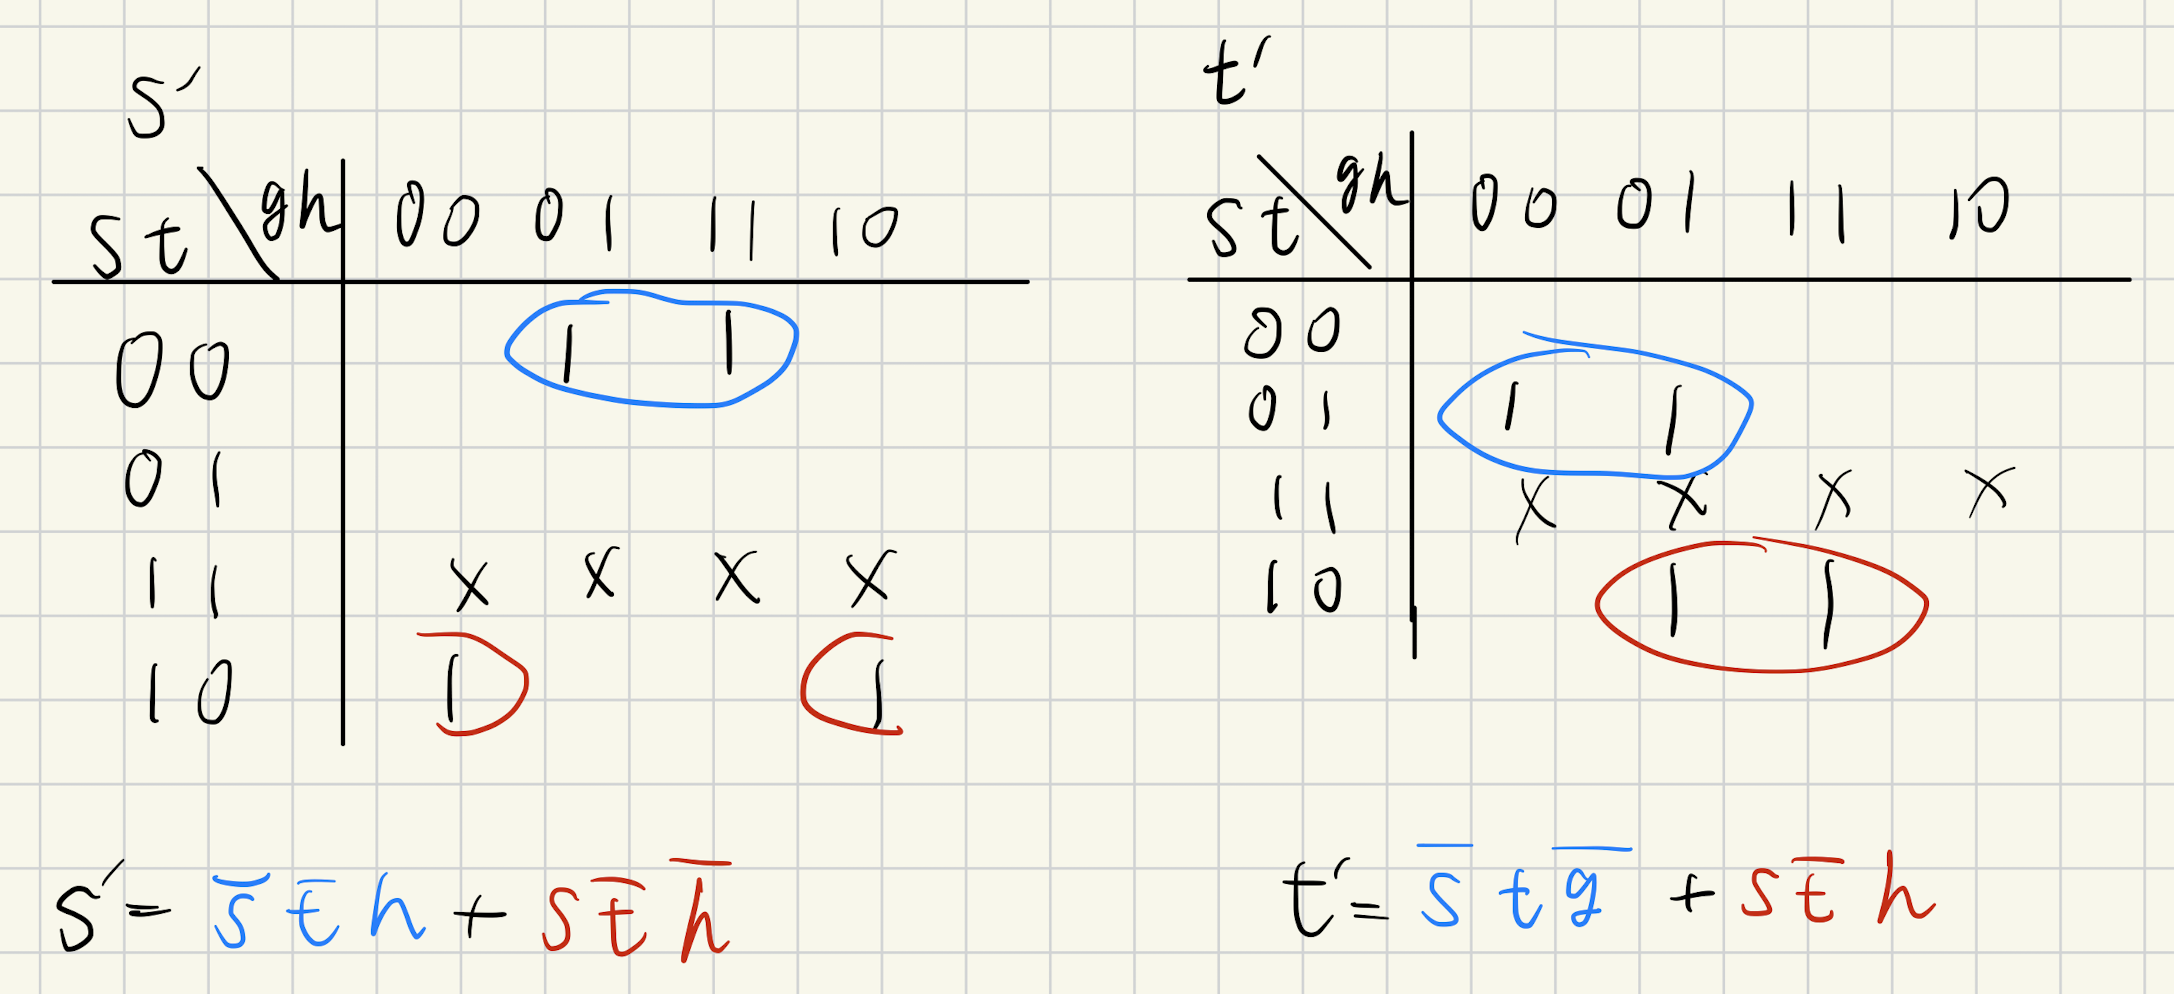 s′
st \ gh 00 01 11 10
00 1 1
01
11 x x x x
10 1 1
s′ = s̅ t̅ h + s t̅ h̅
t′
st \ gh 00 01 11 10
00
01 1 1
11 x x x x
10 1 1
t′ = s̅ t g̅ + s t̅ h